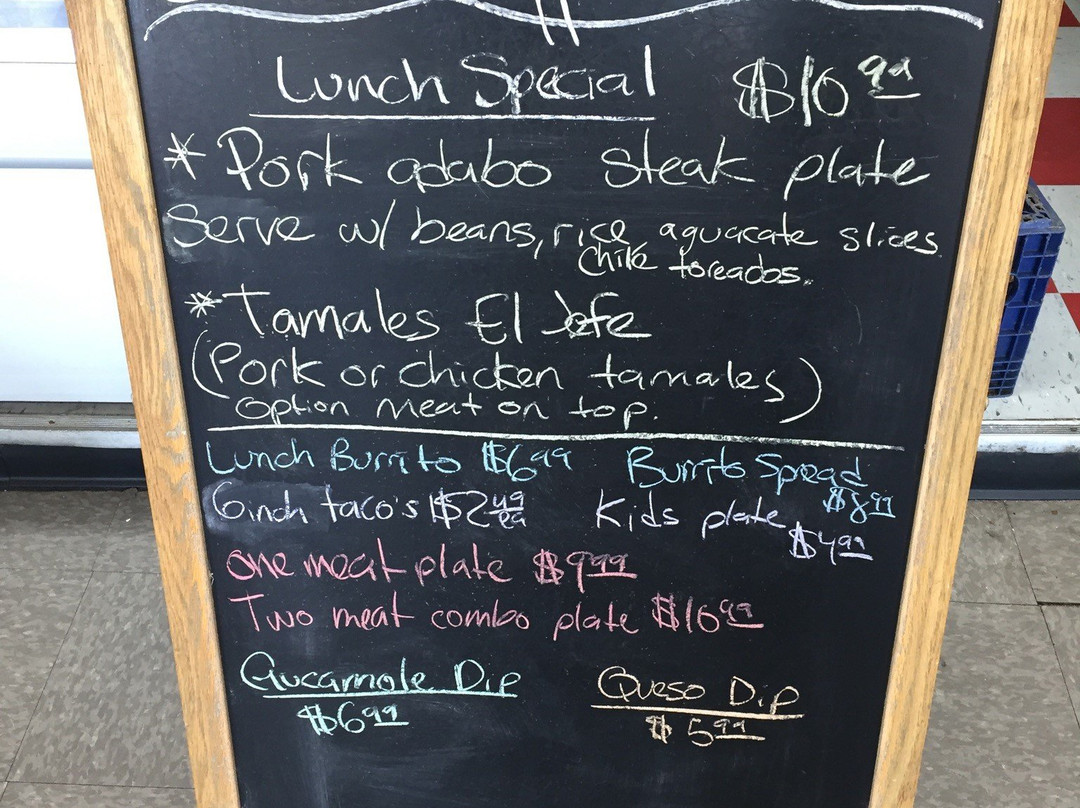 Lunch Special $10.99
* Pork adabo steak plate
Serve w/ beans, rice, aguacate slices
Chile toreados.
* Tamales El Jefe
(Pork or chicken tamales)
option meat on top.
Lunch Burrito $6.99 Burrito Spread $8.99
6inch taco's $2.49 ea Kids plate $4.99
one meat plate $9.99
Two meat combo plate $10.99
Gucamole Dip Queso Dip
$6.99 $5.99